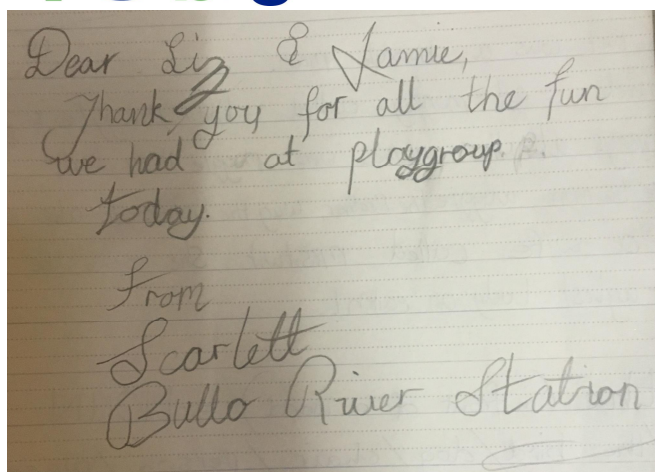 Dear Liz & Jamie,
Thank you for all the fun
we had at playgroup.
today.
From
Scarlett
Bullo River Station